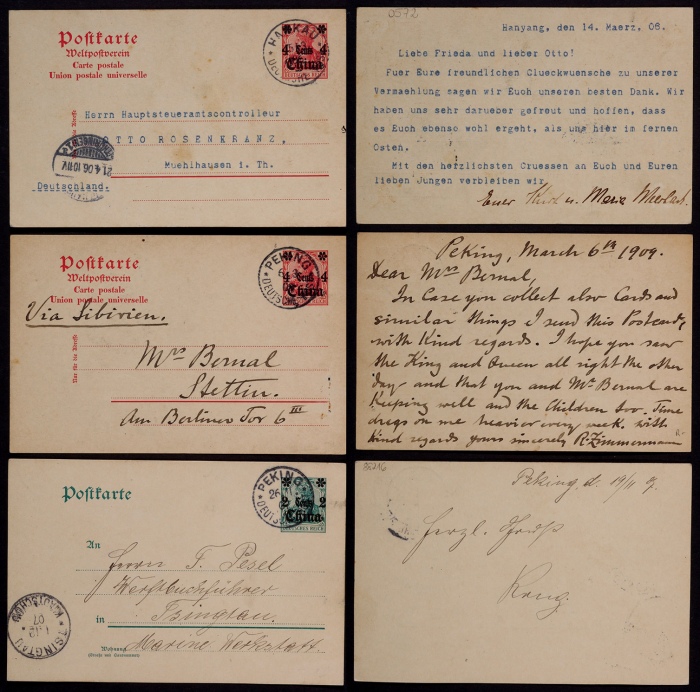 Postkarte
Weltpostverein
Carte postale
Union postale universelle
Nur für die Adresse
HANKAU
DEUTSCHE
4 Cents 4
China
DEUTSCHES REICH
Herrn Hauptsteueramtscontrolleur
OTTO ROSENKRANZ,
Muehlhausen i. Th.
Deutschland.
21.4.06.10-11V.
0372
Hanyang, den 14. Maerz, 06.
Liebe Frieda und lieber Otto!
Fuer Eure freundlichen Glueckwuensche zu unserer
Vermaehlung sagen wir Euch unseren besten Dank. Wir
haben uns sehr darueber gefreut und hoffen, dass
es Euch ebenso wohl ergeht, als uns hier im fernen
Osten.
Mit den herzlichsten Gruessen an Euch und Euren
lieben Jungen verbleiben wir
Euer Kurt u. Marie
Postkarte
Weltpostverein
Carte postale
Union postale universelle
Nur für die Adresse
PEKING
DEUTSCHE
4 Cents 4
China
Via Sibirien.
Mrs Bernal
Stettin.
Am Berliner Tor 6 III
Peking, March 6th 1909.
Dear Mrs Bernal,
In Case you collect also Cards and
similar things I send this Postcard,
with Kind regards. I hope you saw
the King and Queen all right the other
day - and that you and Mr Bernal are
Keeping well and the Children too. Time
drags on me heavier every week. with
kind regards yours sincerely R. Zimmermann
Postkarte
PEKING
26
DEUTSCHE
2 Cents 2
China
DEUTSCHES REICH
An
Herrn F. Pesel
Werftbuchführer
in Tsingtau.
Wohnung Marine Werkstatt.
(Straße und Hausnummer)
TSINGTAU
KIAUTSCHOU
07
85216
Peking, d. 19/11 7.
Herzl. Gruß